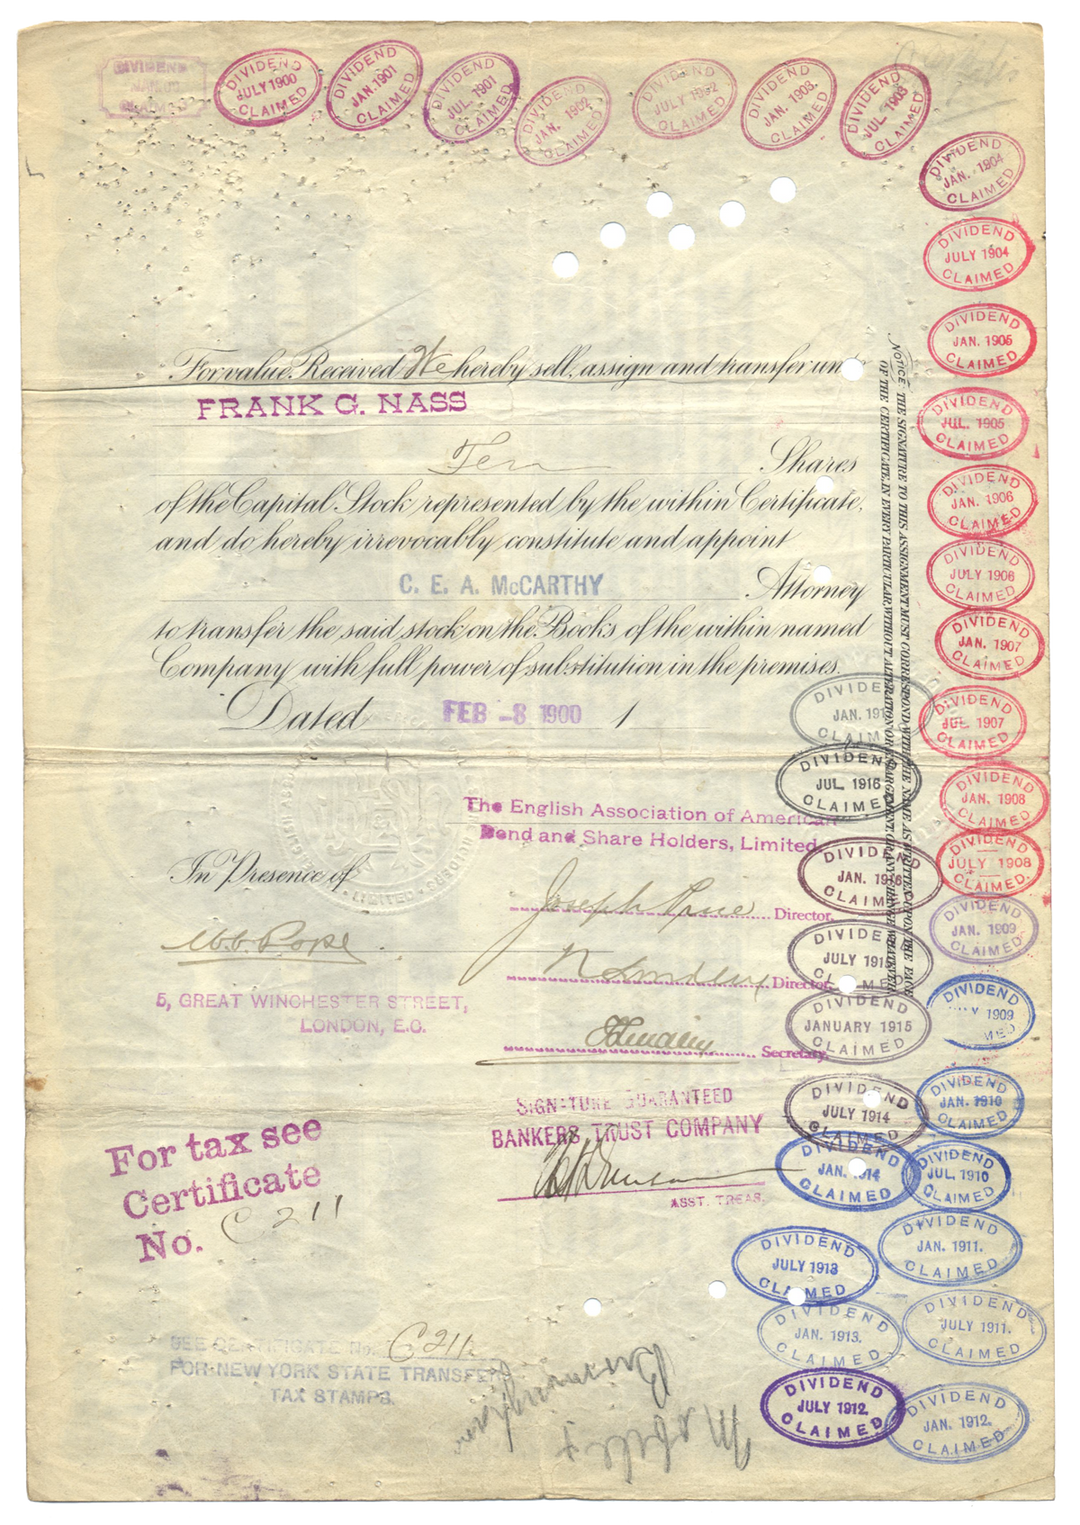 DIVIDEND
CLAIMED
DIVIDEND
JULY 1900
CLAIMED
DIVIDEND
JAN. 1901
CLAIMED
DIVIDEND
JUL. 1901
CLAIMED
DIVIDEND
JAN. 1902
CLAIMED
DIVIDEND
JULY 1902
CLAIMED
DIVIDEND
JAN. 1903.
CLAIMED
DIVIDEND
JUL. 1903
CLAIMED
DIVIDEND
JAN. 1904
CLAIMED
DIVIDEND
JULY 1904
CLAIMED
DIVIDEND
JAN. 1905
CLAIMED
DIVIDEND
JUL. 1905
CLAIMED
DIVIDEND
JAN. 1906
CLAIMED
DIVIDEND
JULY 1906
CLAIMED
DIVIDEND
JAN. 1907
CLAIMED
DIVIDEND
JUL. 1907
CLAIMED
DIVIDEND
JAN. 1908
CLAIMED
DIVIDEND
JULY 1908
CLAIMED.
DIVIDEND
JAN. 1909
CLAIMED
DIVIDEND
1909
DIVIDEND
JAN. 1910
CLAIMED
DIVIDEND
JUL. 1910
CLAIMED
DIVIDEND
JAN. 1911.
CLAIMED
DIVIDEND
JULY 1911.
CLAIMED
DIVIDEND
JAN. 1912.
CLAIMED
DIVIDEND
JULY 1912.
CLAIMED
DIVIDEND
JAN. 1913.
CLAIMED
DIVIDEND
JULY 1913
CLAIMED
DIVIDEND
JAN. 1914
CLAIMED
DIVIDEND
JULY 1914
CLAIMED
DIVIDEND
JANUARY 1915
CLAIMED
DIVIDEND
JULY 1915
CLAIMED
DIVIDEND
JAN. 1916
CLAIMED
DIVIDEND
JUL. 1916
CLAIMED
DIVIDEND
JAN.
CLAIMED
For value Received We hereby sell, assign and transfer un
FRANK G. NASS
Ten Shares
of the Capital Stock represented by the within Certificate,
and do hereby irrevocably constitute and appoint
C. E. A. McCARTHY Attorney
to transfer the said stock on the Books of the within named
Company with full power of substitution in the premises.
Dated FEB -8 1900 1
NOTICE THE SIGNATURE TO THIS ASSIGNMENT MUST CORRESPOND WITH THE NAME AS WRITTEN UPON THE FACE
OF THE CERTIFICATE, IN EVERY PARTICULAR, WITHOUT ALTERATION OR ENLARGEMENT OR ANY CHANGE WHATEVER
The English Association of American
Bond and Share Holders, Limited.
In Presence of
Joseph Price Director,
W. C. Pope
Director,
5, GREAT WINCHESTER STREET,
LONDON, E.C.
Secretary.
LIMITED
SIGNATURE GUARANTEED
BANKERS TRUST COMPANY
ASST. TREAS.
For tax see
Certificate
No. C 211
SEE CERTIFICATE No. C 211
FOR NEW YORK STATE TRANSFER
TAX STAMPS.